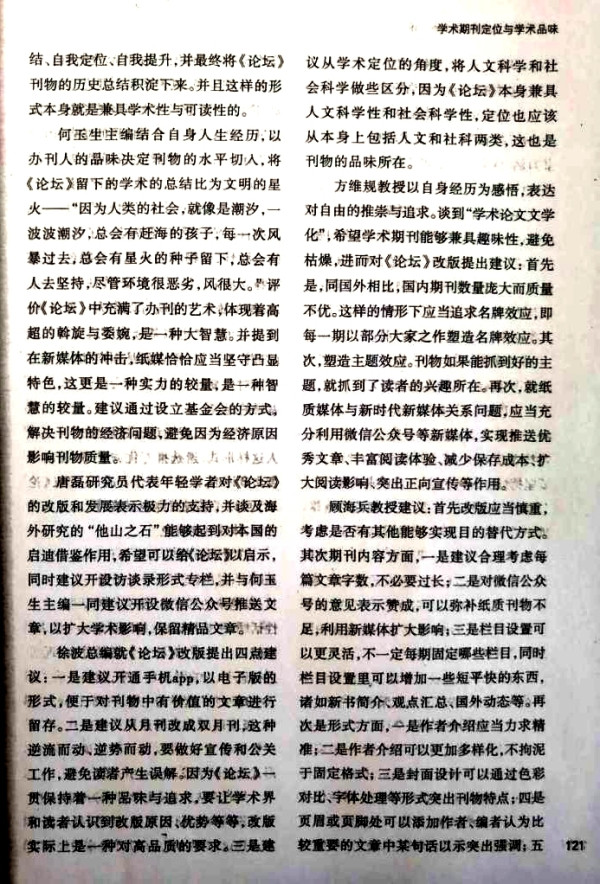 学术期刊定位与学术品味
结、自我定位、自我提升，并最终将《论坛》
刊物的历史总结积淀下来。并且这样的形
式本身就是兼具学术性与可读性的。
何玉生主编结合自身人生经历，以
办刊人的品味决定刊物的水平切入，将
《论坛》留下的学术的总结比为文明的星
火——“因为人类的社会，就像是潮汐，一
波波潮汐，总会有赶海的孩子，每一次风
暴过去，总会有星火的种子留下，总会有
人去坚持，尽管环境很恶劣，风很大。”评
价《论坛》中充满了办刊的艺术，体现着高
超的斡旋与委婉，是一种大智慧。并提到
在新媒体的冲击，纸媒恰恰应当坚守凸显
特色，这更是一种实力的较量，是一种智
慧的较量。建议通过设立基金会的方式，
解决刊物的经济问题，避免因为经济原因
影响刊物质量。
唐磊研究员代表年轻学者对《论坛》
的改版和发展表示极力的支持，并谈及海
外研究的“他山之石”能够起到对本国的
启迪借鉴作用，希望可以给《论坛》以启示，
同时建议开设访谈录形式专栏，并与何玉
生主编一同建议开设微信公众号推送文
章，以扩大学术影响，保留精品文章。
徐波总编就《论坛》改版提出四点建
议：一是建议开通手机app，以电子版的
形式，便于对刊物中有价值的文章进行
留存。二是建议从月刊改成双月刊，这种
逆流而动、逆势而动，要做好宣传和公关
工作，避免读者产生误解。因为《论坛》一
贯保持着一种品味与追求，要让学术界
和读者认识到改版原因、优势等等，改版
实际上是一种对高品质的要求。三是建
议从学术定位的角度，将人文科学和社
会科学做些区分，因为《论坛》本身兼具
人文科学性和社会科学性，定位也应该
从本身上包括人文和社科两类，这也是
刊物的品味所在。
方维规教授以自身经历为感悟，表达
对自由的推崇与追求。谈到“学术论文文学
化”，希望学术期刊能够兼具趣味性，避免
枯燥，进而对《论坛》改版提出建议：首先
是，同国外相比，国内期刊数量庞大而质量
不优。这样的情形下应当追求名牌效应，即
每一期以部分大家之作塑造名牌效应。其
次，塑造主题效应。刊物如果能抓到好的主
题，就抓到了读者的兴趣所在。再次，就纸
质媒体与新时代新媒体关系问题，应当充
分利用微信公众号等新媒体，实现推送优
秀文章、丰富阅读体验、减少保存成本、扩
大阅读影响、突出正向宣传等作用。
顾海兵教授建议：首先改版应当慎重，
考虑是否有其他能够实现目的替代方式。
其次期刊内容方面，一是建议合理考虑每
篇文章字数，不必要过长；二是对微信公众
号的意见表示赞成，可以弥补纸质刊物不
足，利用新媒体扩大影响；三是栏目设置可
以更灵活，不一定每期固定哪些栏目，同时
栏目设置里可以增加一些短平快的东西，
诸如新书简介、观点汇总、国外动态等。再
次是形式方面，一是作者介绍应当力求精
准；二是作者介绍可以更加多样化，不拘泥
于固定格式；三是封面设计可以通过色彩
对比、字体处理等形式突出刊物特点；四是
页眉或页脚处可以添加作者、编者认为比
较重要的文章中某句话以示突出强调；五
121